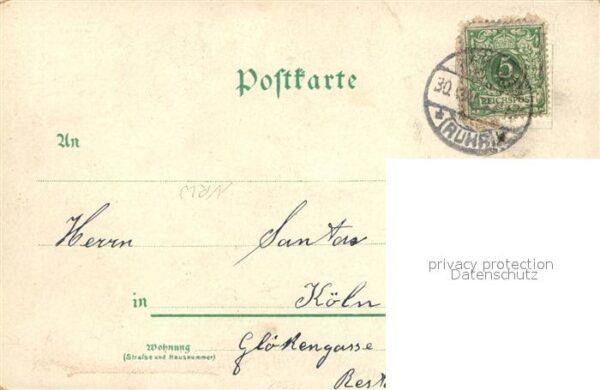 Postkarte
5
REICHSPOST
30.
(RUHR)
An
NRW
Herrn Santas
privacy protection
Datenschutz
in Köln
Wohnung
(Straße und Hausnummer)
Glökengasse
Rest